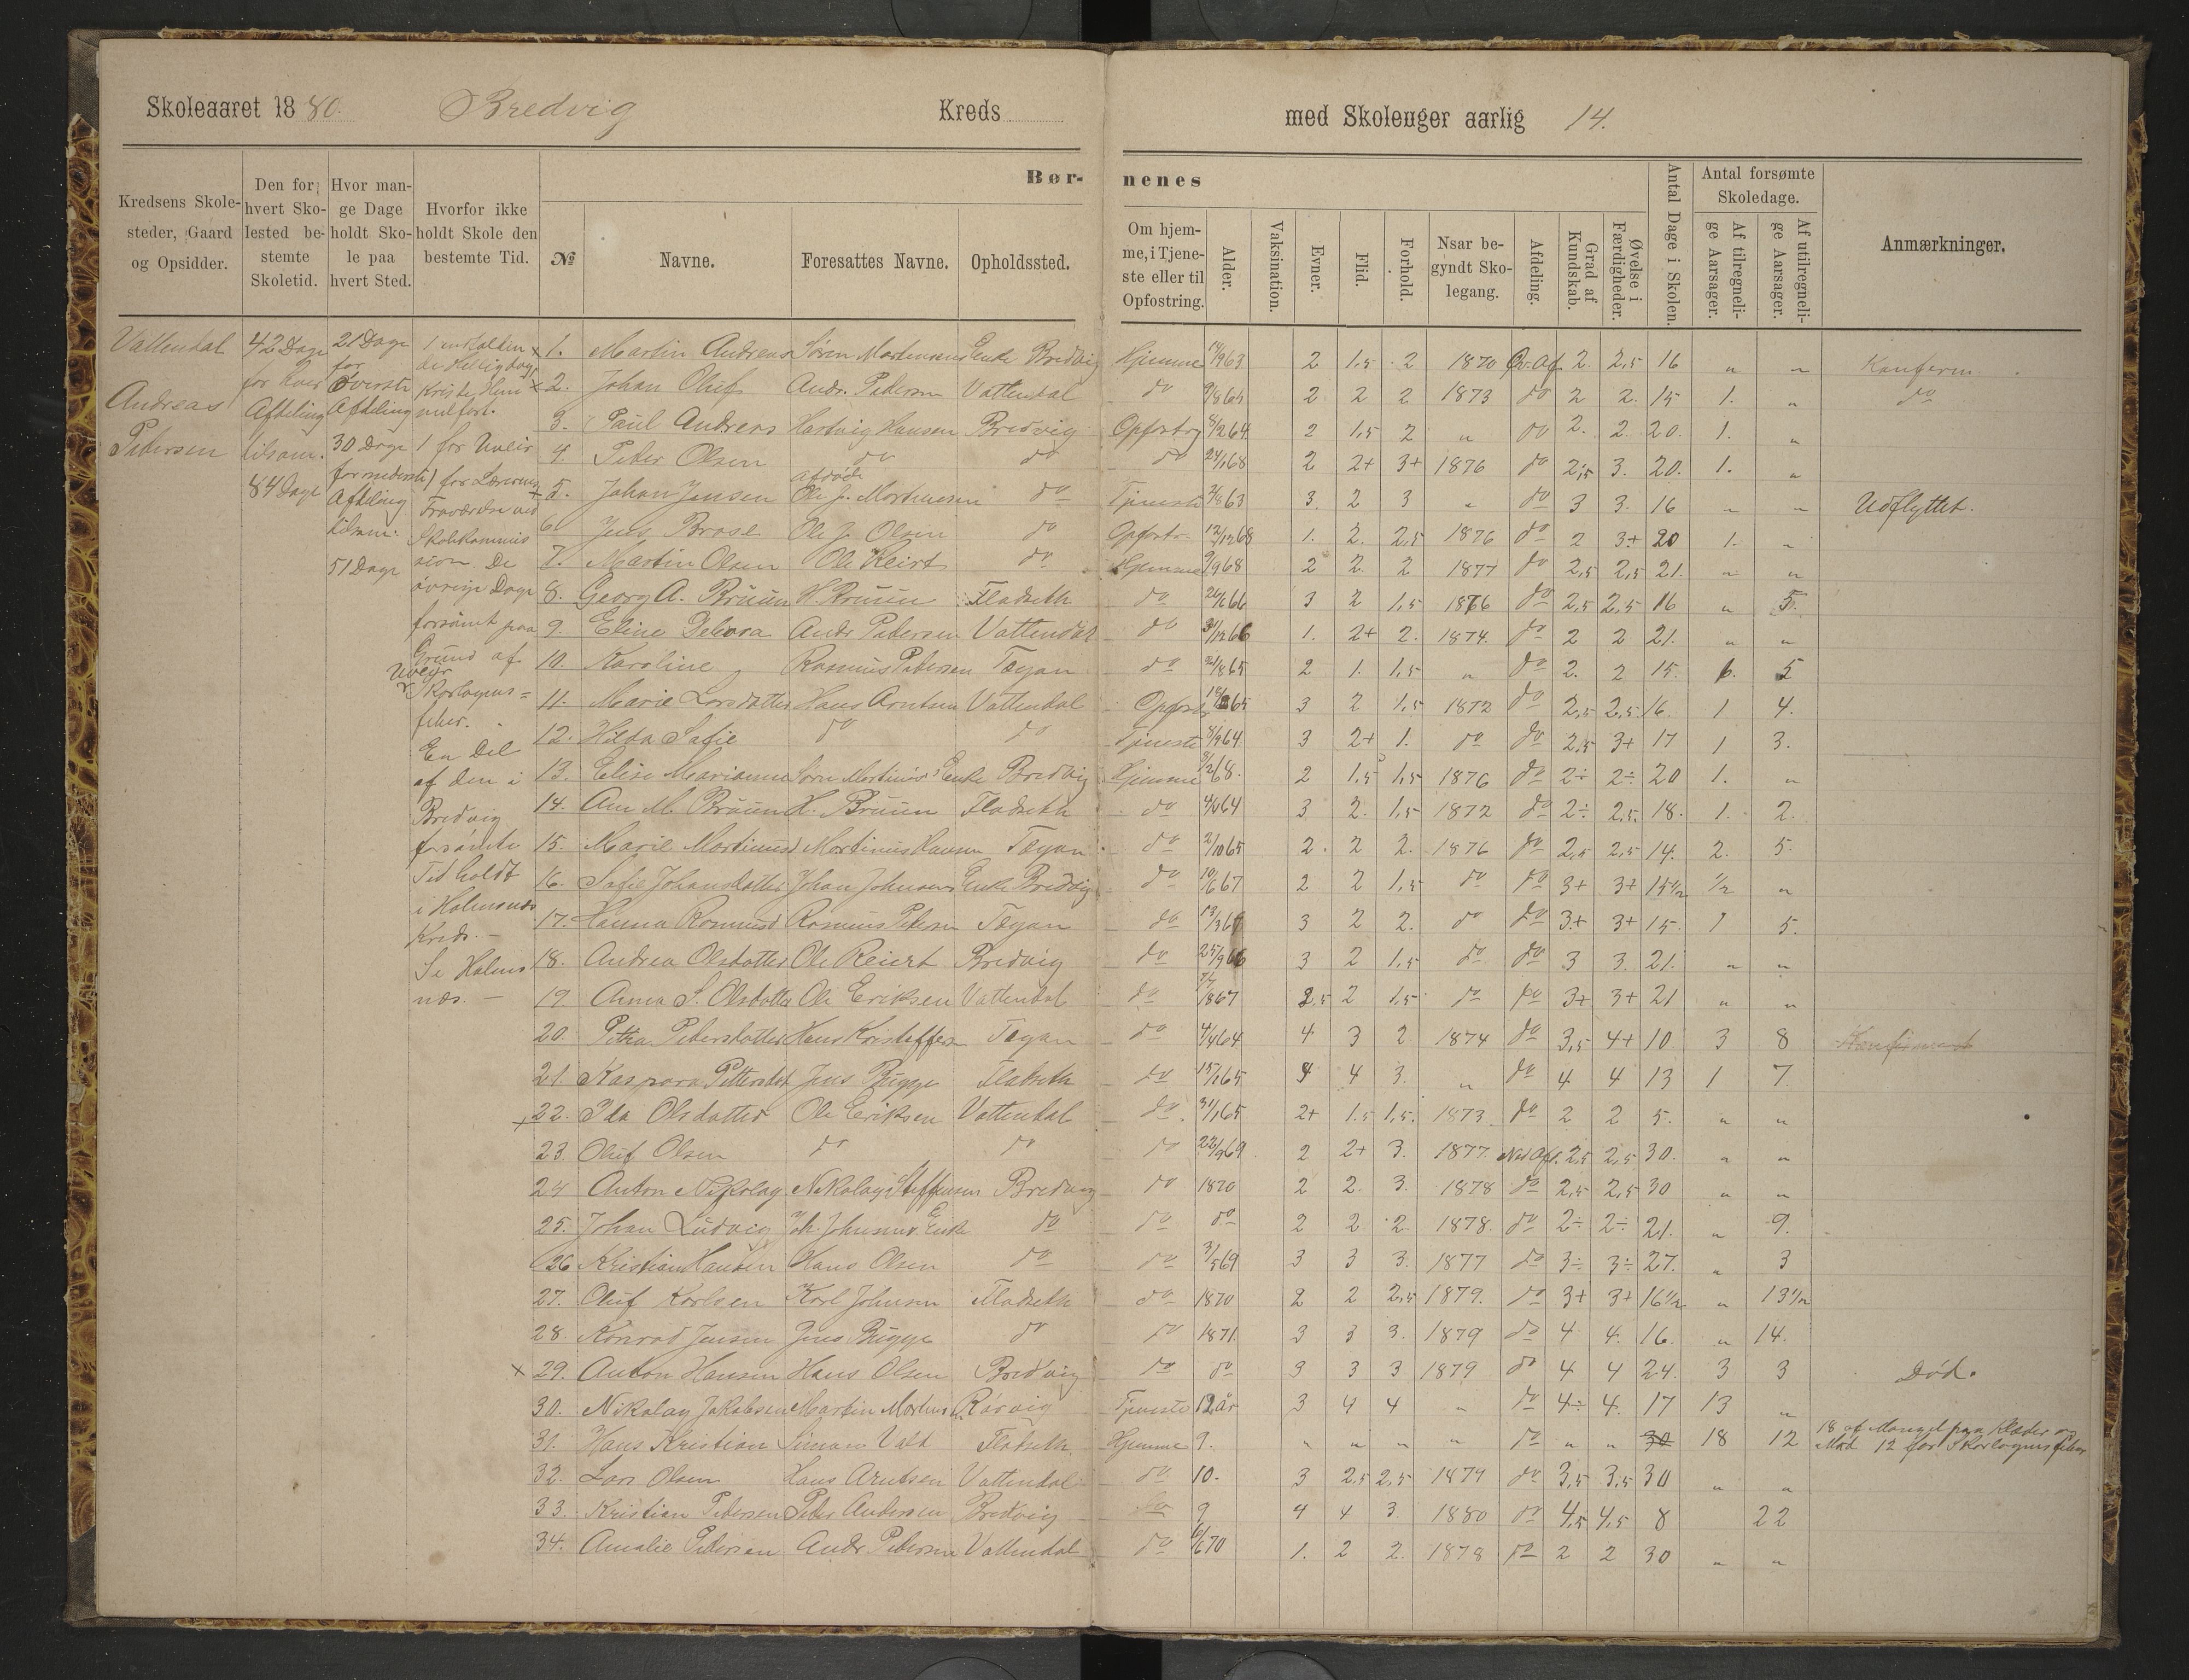 Skoleaaret 1880. Bredvig Kreds med Skoleuger aarlig 14.
Kredsens Skolesteder, Gaard og Opsidder.
Den for hvert Skolested bestemte Skoletid.
Hvor mange Dage holdt Skole paa hvert Sted.
Hvorfor ikke holdt Skole den bestemte Tid.
Børnenes
№ Navne. Foresattes Navne. Opholdssted. Om hjemme, i Tjeneste eller til Opfostring. Alder. Vaksination. Evner. Flid. Forhold. Naar begyndt Skolegang. Afdeling. Grad af Kundskab. Øvelse i Færdigheder. Antal Dage i Skolen.
Antal forsømte Skoledage. Af tilregnelige Aarsager. Af utilregnelige Aarsager.
Anmærkninger.
Vattendal
Andreas
Petersen
42 Dage
for hver
Afdeling
tilsam.
84 Dage
21 Dage
for
Øverste
Afdeling
30 Dage
for nederste
Afdeling
tilsam.
51 Dage
de Helligdage
1 for Uveir
1 for Lærerens
Fraværelse ved
Skolekommis
sion. De
øvrige Dage
forsømt paa
Grund af
Uveir
Skarlagens=
feber.
En Del
af den i
Bredvig
forsømte
Tid holdt
i Holmenæs
Kreds. —
Se Holme
næs. —
x 1. Martin Andreas Søren Mortensens Enke Bredvig Hjemme 14/9 63 2 1,5 2 1870 Øv. Af. 2 2,5 16 " " Konferm
x 2. Johan Oluf Andr. Petersen Vattendal do 9/8 64 2 2 2 1873 do 2 2. 15 1. " do
3. Paul Andreas Hartvig Hansen Bredvig Opfostrg 8/2 64 2 1,5 2 " do 2. 2. 20. 1. "
4. Peter Olsen do do do 24/1 68 2 2+ 3+ 1876 do 2,5 3. 20. 1. "
afdøde
x 5. Johan Jensen Ole J. Mortensen do Tjeneste 2/8 63 3. 2 3 " do 3 3. 16 " " Udflyttet.
6. Jens Brose Ole J. Olsen do Opfostr. 12/12 68 1. 2. 2,5 1876 do 2 3+ 20 1. "
7. Martin Olsen Ole Reiert do Hjemme 9/9 68 2 2. 2 1877 do 2,5 2,5 21. " "
8. Georg A. Bruun H. Bruun Fladseth do 26/6 66 3 2 1,5 1876 do 2,5 2,5 16 " 5.
9. Eline Debora Andr Petersen Vattendal do 31/12 66 1. 2+ 2. 1874. do 2 2 21. " "
10. Karoline Rasmus Petersen Tøgan do 21/8 65 2 1. 1,5 " do 2. 2 15. 6. 5
11. Marie Larsdatter Hans Arntsen Vattendal Opfostr 65 3 2 1,5 1872 do 2,5 2,5 16. 1 4.
12. Hilda Sofie do do Tjeneste 8/9 64. 3 2+ 1. do do 2,5 3+ 17 1 3.
13. Elise Marianne Søren Mortensens Enke Bredvig Hjemme 9/2 68. 2 1,5 1,5 1876 do 2÷ 2÷ 20 1. "
14. Ane M. Bruun H. Bruun Fladseth do 4/6 64 3 2. 1,5 1872 do 2÷ 2,5. 18. 1. 2.
15. Marie Martinusd Martinus Hansen Tøgan do 2/10 65 2. 2 2. 1876 do 2,5 2,5 14. 2. 5.
16. Sofie Johansdatter Johan Johnsens Enke Bredvig do 10/6 67 2 2 1,5 do do 3+ 3+ 15½ ½ "
17. Hanna Rasmusd Rasmus Petersen Tøgan do 13/3 67 3 2 2. do do 3+ 3+ 15. 1 5.
18. Andrea Olsdatter Ole Reiert Bredvig do 25/9 66 3 2 1,5 do do 3 3. 21. " "
19 Anna S. Olsdatter Ole Eriksen Vattendal do 7/8 67 2,5 2 1,5 do do 3+ 3+ 21 " "
20. Petra Petersdatter Hans Kristoffers Tøgan do 4/4 64 4 3 2 1874 do 3,5 4+ 10. 3 8 Konfirmert
21 Kaspara Pettersdat Jens Bugge Fladseth do 15/1 65 4 4 3. " do 4 4 13 1 7
x 22. Ida Olsdatter Ole Eriksen Vattendal do 31/1 65 2+ 1.5 1,5. 1873. do 2 2 5. " "
23. Oluf Olsen do do do 22/9 69. 2 2+ 3. 1877. Ned Afd. 2,5 2,5 30. " "
24 Anton Nikolay Nikolay Steffensen Bredvig do 1870 2 2. 3. 1878 do 2,5 2,5 30 " "
25. Johan Ludvig Joh. Johnsens Enke do do do 2 2 2. 1878. do 2÷ 2÷ 21. " 9.
26 Kristian Hansen Hans Olsen do do 3/5 69 3 3 3. 1877 do 3÷ 3÷ 27. " 3
27. Oluf Karlsen Karl Johnsen Fladseth do 1870 2 2 2,5 1879. do 3+ 3+ 16½ " 13½
28. Konrad Jensen Jens Bugge do do 1871. 3 3 3. 1879 do 4 4. 16. " 14.
x 29. Anton Hansen Hans Olsen Bredvig do do 3 3 3 1879 do 4 4 24. 3 3 Død.
30. Nikolay Jakobsen Martin Mortens. Rørvig Tjeneste 12 år 3 4 4 " do 4÷ 4. 17 13 "
31. Hans Kristian Simon Vald Fladseth. Hjemme 9. " " " " do " " 30 18 12 18 af Mangel paa Klæder og
Mad 12 for Skarlagensfeber
32. Lars Olsen Hans Arntsen Vattendal do 10. 3 2,5 2,5 1879 do 3,5 3,5 30 " "
33. Kristian Petersen Peter Andersen Bredvig do 9 4 4 3. 1880 do 4,5 4,5 8 22
34. Amalie Petersen Andr. Petersen Vattendal do 6/6 70 1. 2 2. 1878 do 2 2 30 " "